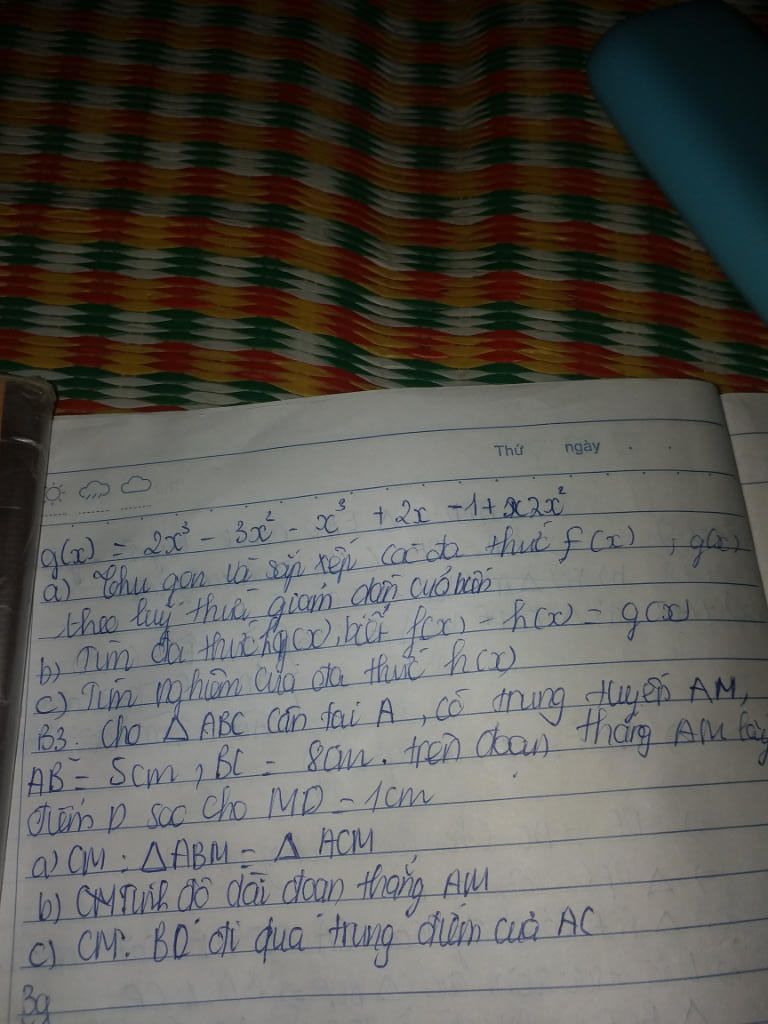 Thứ ngày
g(x) = 2x³ - 3x² - x³ + 2x - 1 + 2x²
a) Thu gọn và sắp xếp các đa thức f(x), g(x)
theo luỹ thừa giảm dần của biến
b) Tìm đa thức h(x), biết f(x) - h(x) = g(x)
c) Tìm nghiệm của đa thức h(x)
B3. Cho △ ABC cân tại A, có trung tuyến AM,
AB = 5cm, BC = 8cm. trên đoạn thẳng AM lấy
điểm D sao cho MD = 1cm
a) CM: △ABM = △ ACM
b) Tính độ dài đoạn thẳng AM
c) CM: BD đi qua trung điểm của AC
3g